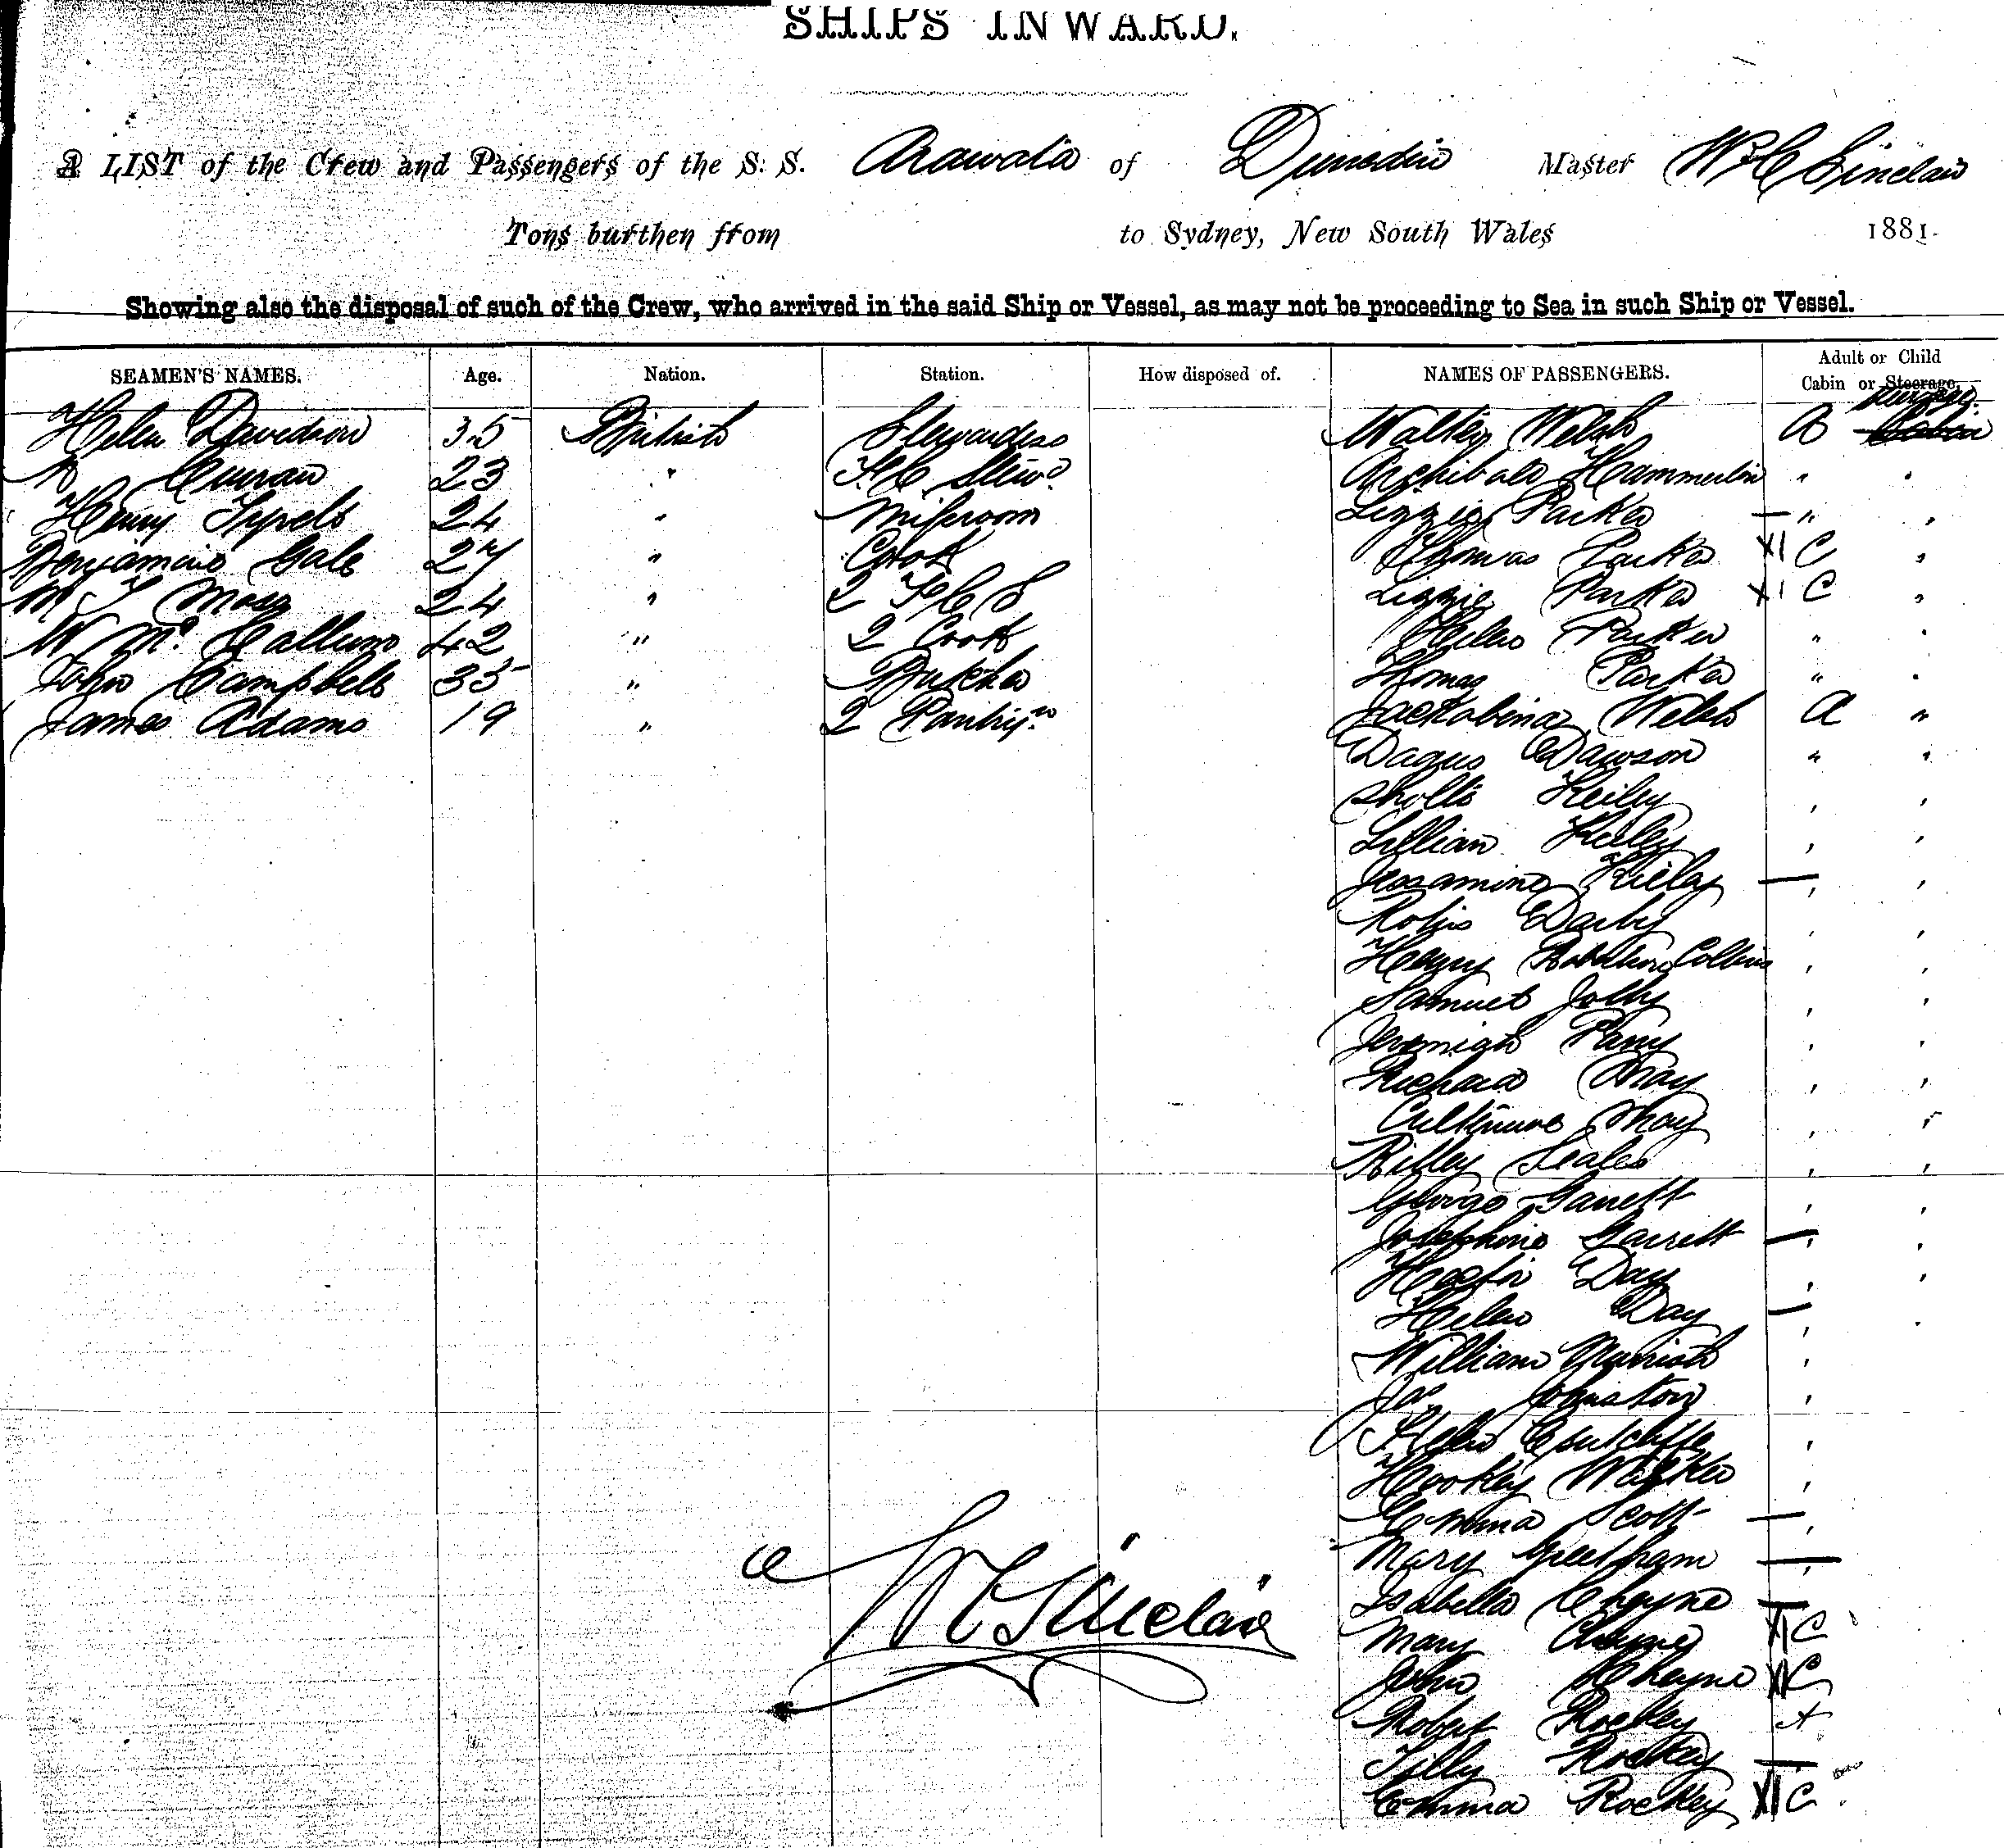 SHIPS INWARD.
A LIST of the Crew and Passengers of the S. S. Arawata of Dunedin Master W C Sinclair
Tons burthen from to Sydney, New South Wales 1881.
Showing also the disposal of such of the Crew, who arrived in the said Ship or Vessel, as may not be proceeding to Sea in such Ship or Vessel.
SEAMEN'S NAMES. Age. Nation. Station. How disposed of. NAMES OF PASSENGERS. Adult or Child
Cabin or Steerage.
Steerage
Helen Davidson 35 British Stewardess Walter Welsh A Cabin
Curran 23 " F.C. Stewd Archibald Hammerlin " "
Henry 24 " Messroom Lizzie Parker " "
Benjamin Gale 27 " Cook Thomas Parker XI C "
M J 24 " 2 F C S Lizzie Parker XI C "
W Mc Callum 42 " 2 Cook Helen Parker " "
John Campbell 35 " Butcher Thomas Parker " "
James Adams 19 " 2 Pantryn Jackobina Welsh A "
Dagus Dawson " "
Sholto Keiley " "
Lillian Keiley " "
Jessamine Kieley " "
Robin Darby " "
Henry Collins " "
Samuel Jolly " "
Jeremiah Parry " "
Richard May " "
May " "
Hilley Seales " "
George Garrett " "
Josephine Garrett " "
Day " "
Helen Day " "
William "
Jas Johnston "
Coutcliffe "
Hookey Walker "
Emma Scott "
Mary Greetham "
Isabella Cheyne
Mary Cheyne XI C
John Cheyne XI C
Robert Rockey A
Tilly Rockey
Emma Rockey XI C
W C Sinclair